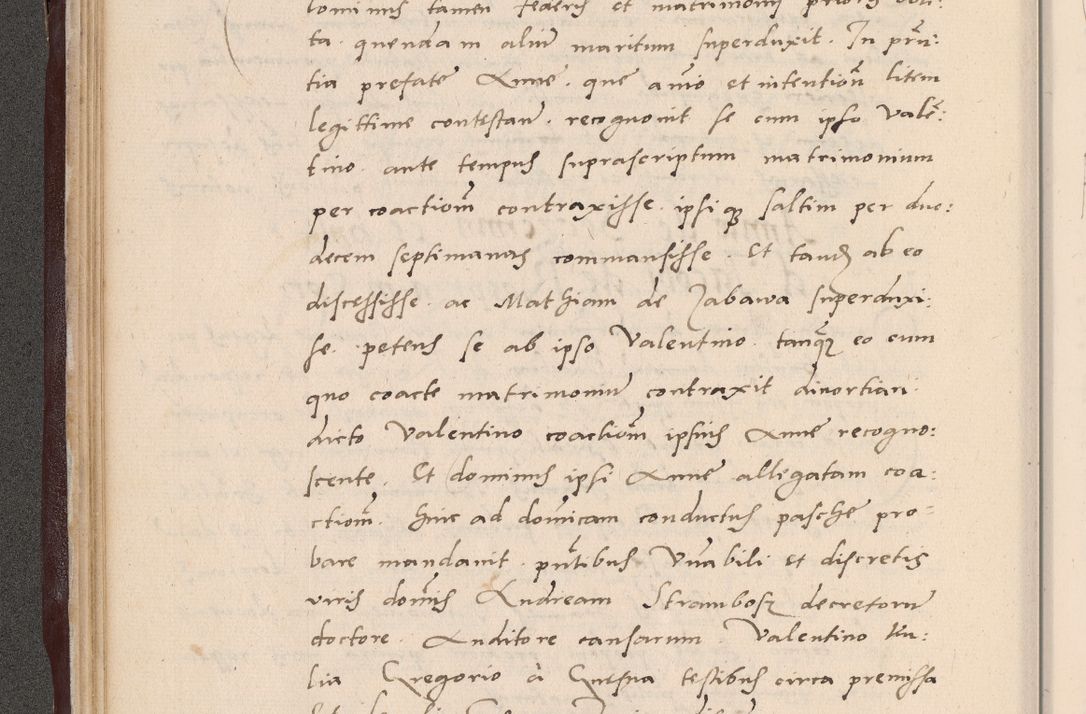 dominus tamen federis et matrimonii prioris obli:
ta. quendam aliũ maritum superduxit. In pñ:
tia prefate Anne. que aĩo et intentioñ litem
legittime contestanđ. recognovit se cum ipso Valẽ:
tino. ante tempus suprascriptum matrimonium
per coactioñ contraxisse. ipsi qz saltim per duo:
decem septimanas commansisse. Et tandẽ ab eo
discessisse. ac Mathiam de Zabawa superduxi:
sse. petens se ab ipso Valentino. tanqz eo cum
quo coacte matrimoniũ contraxit divortiari.
dicto Valentino coactioñ ipsius Anne recogno:
scente. Et dominus ipsi Anne allegatam coa:
ctioñ. hinc ad domĩcam conductus pasche pro:
bare mandavit. pñtibus Vñabili et discretis
viris domĩs Andream Strambosz decretorũ
doctore. Auditore causarum. Valentino Iu:
lia Gregorio a Gnesna testibus circa premissa